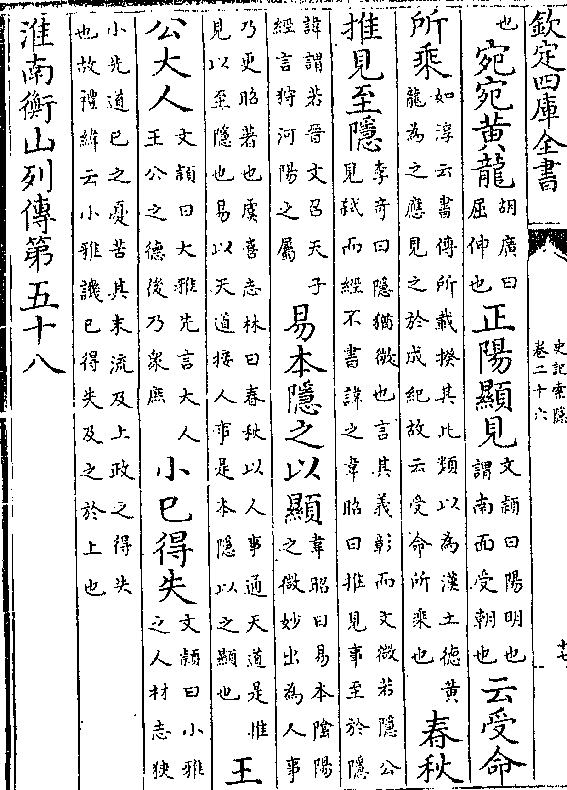 欽定四庫全書
史記索隱
卷二十六
十七
也宛宛黃龍胡廣曰屈伸也正陽顯見文穎曰陽明也謂南面受朝也云受命
所乘如淳云書傳所載揆其比類以為漢土德黃龍為之應見之於成紀故云受命所乘也春秋
推見至隱李奇曰隱猶微也言其義彰而文微若隱公見弑而經不書諱之韋昭曰推見事至於隱
諱謂若晉文召天子經言狩河陽之屬易本隱之以顯韋昭曰易本陰陽之微妙出為人事
乃更昭著也虞喜志林曰春秋以人事通天道是惟見以至隱也易以天道接人事是本隱以之顯也王
公大人文穎曰大雅先言大人王公之德後乃衆庶小已得失文穎曰小雅之人材志狹
小先道已之憂苦其末流及上政之得失也故禮緯云小雅譏已得失及之於上也
淮南衡山列傳第五十八